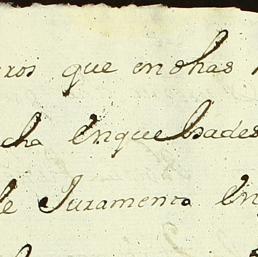 ros que en ohas
cha En que Usades
le Juramento en